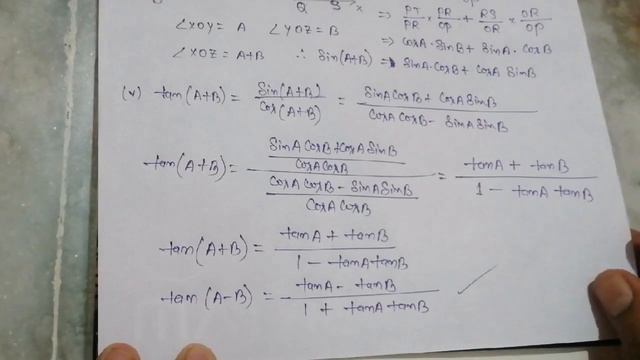 Q S x ⇒ PT/PR × PR/OP + RS/OR × OR/OP
∠XOY = A ∠YOZ = B ⇒ CosA·SinB + SinA·CosB
∠XOZ = A+B ∴ Sin(A+B) = SinA·CosB + CosA SinB
(v) tan(A+B) = Sin(A+B)/Cos(A+B) = SinACosB + CosASinB / CosACosB − SinASinB
tan(A+B) = (SinACosB + CosASinB / CosACosB) / (CosACosB − SinASinB / CosACosB) = tanA + tanB / 1 − tanA tanB
tan(A+B) = tanA + tanB / 1 − tanAtanB
tan(A−B) = tanA − tanB / 1 + tanAtanB ✓